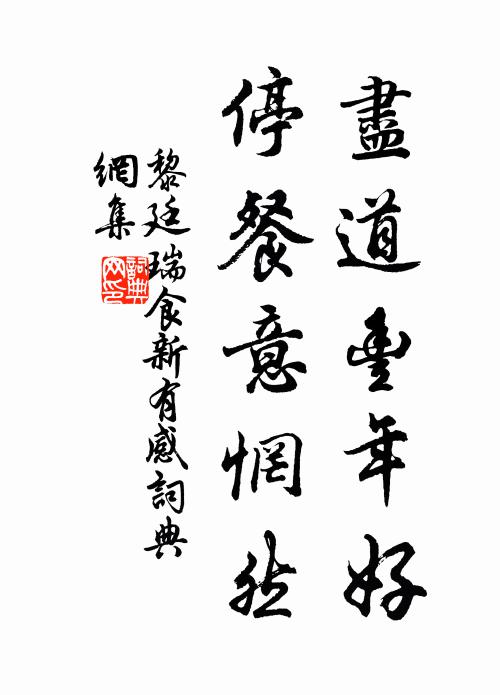 盡道豐年好
停餐意惘然
黎廷瑞食新有感詞典
網集
詞典網印